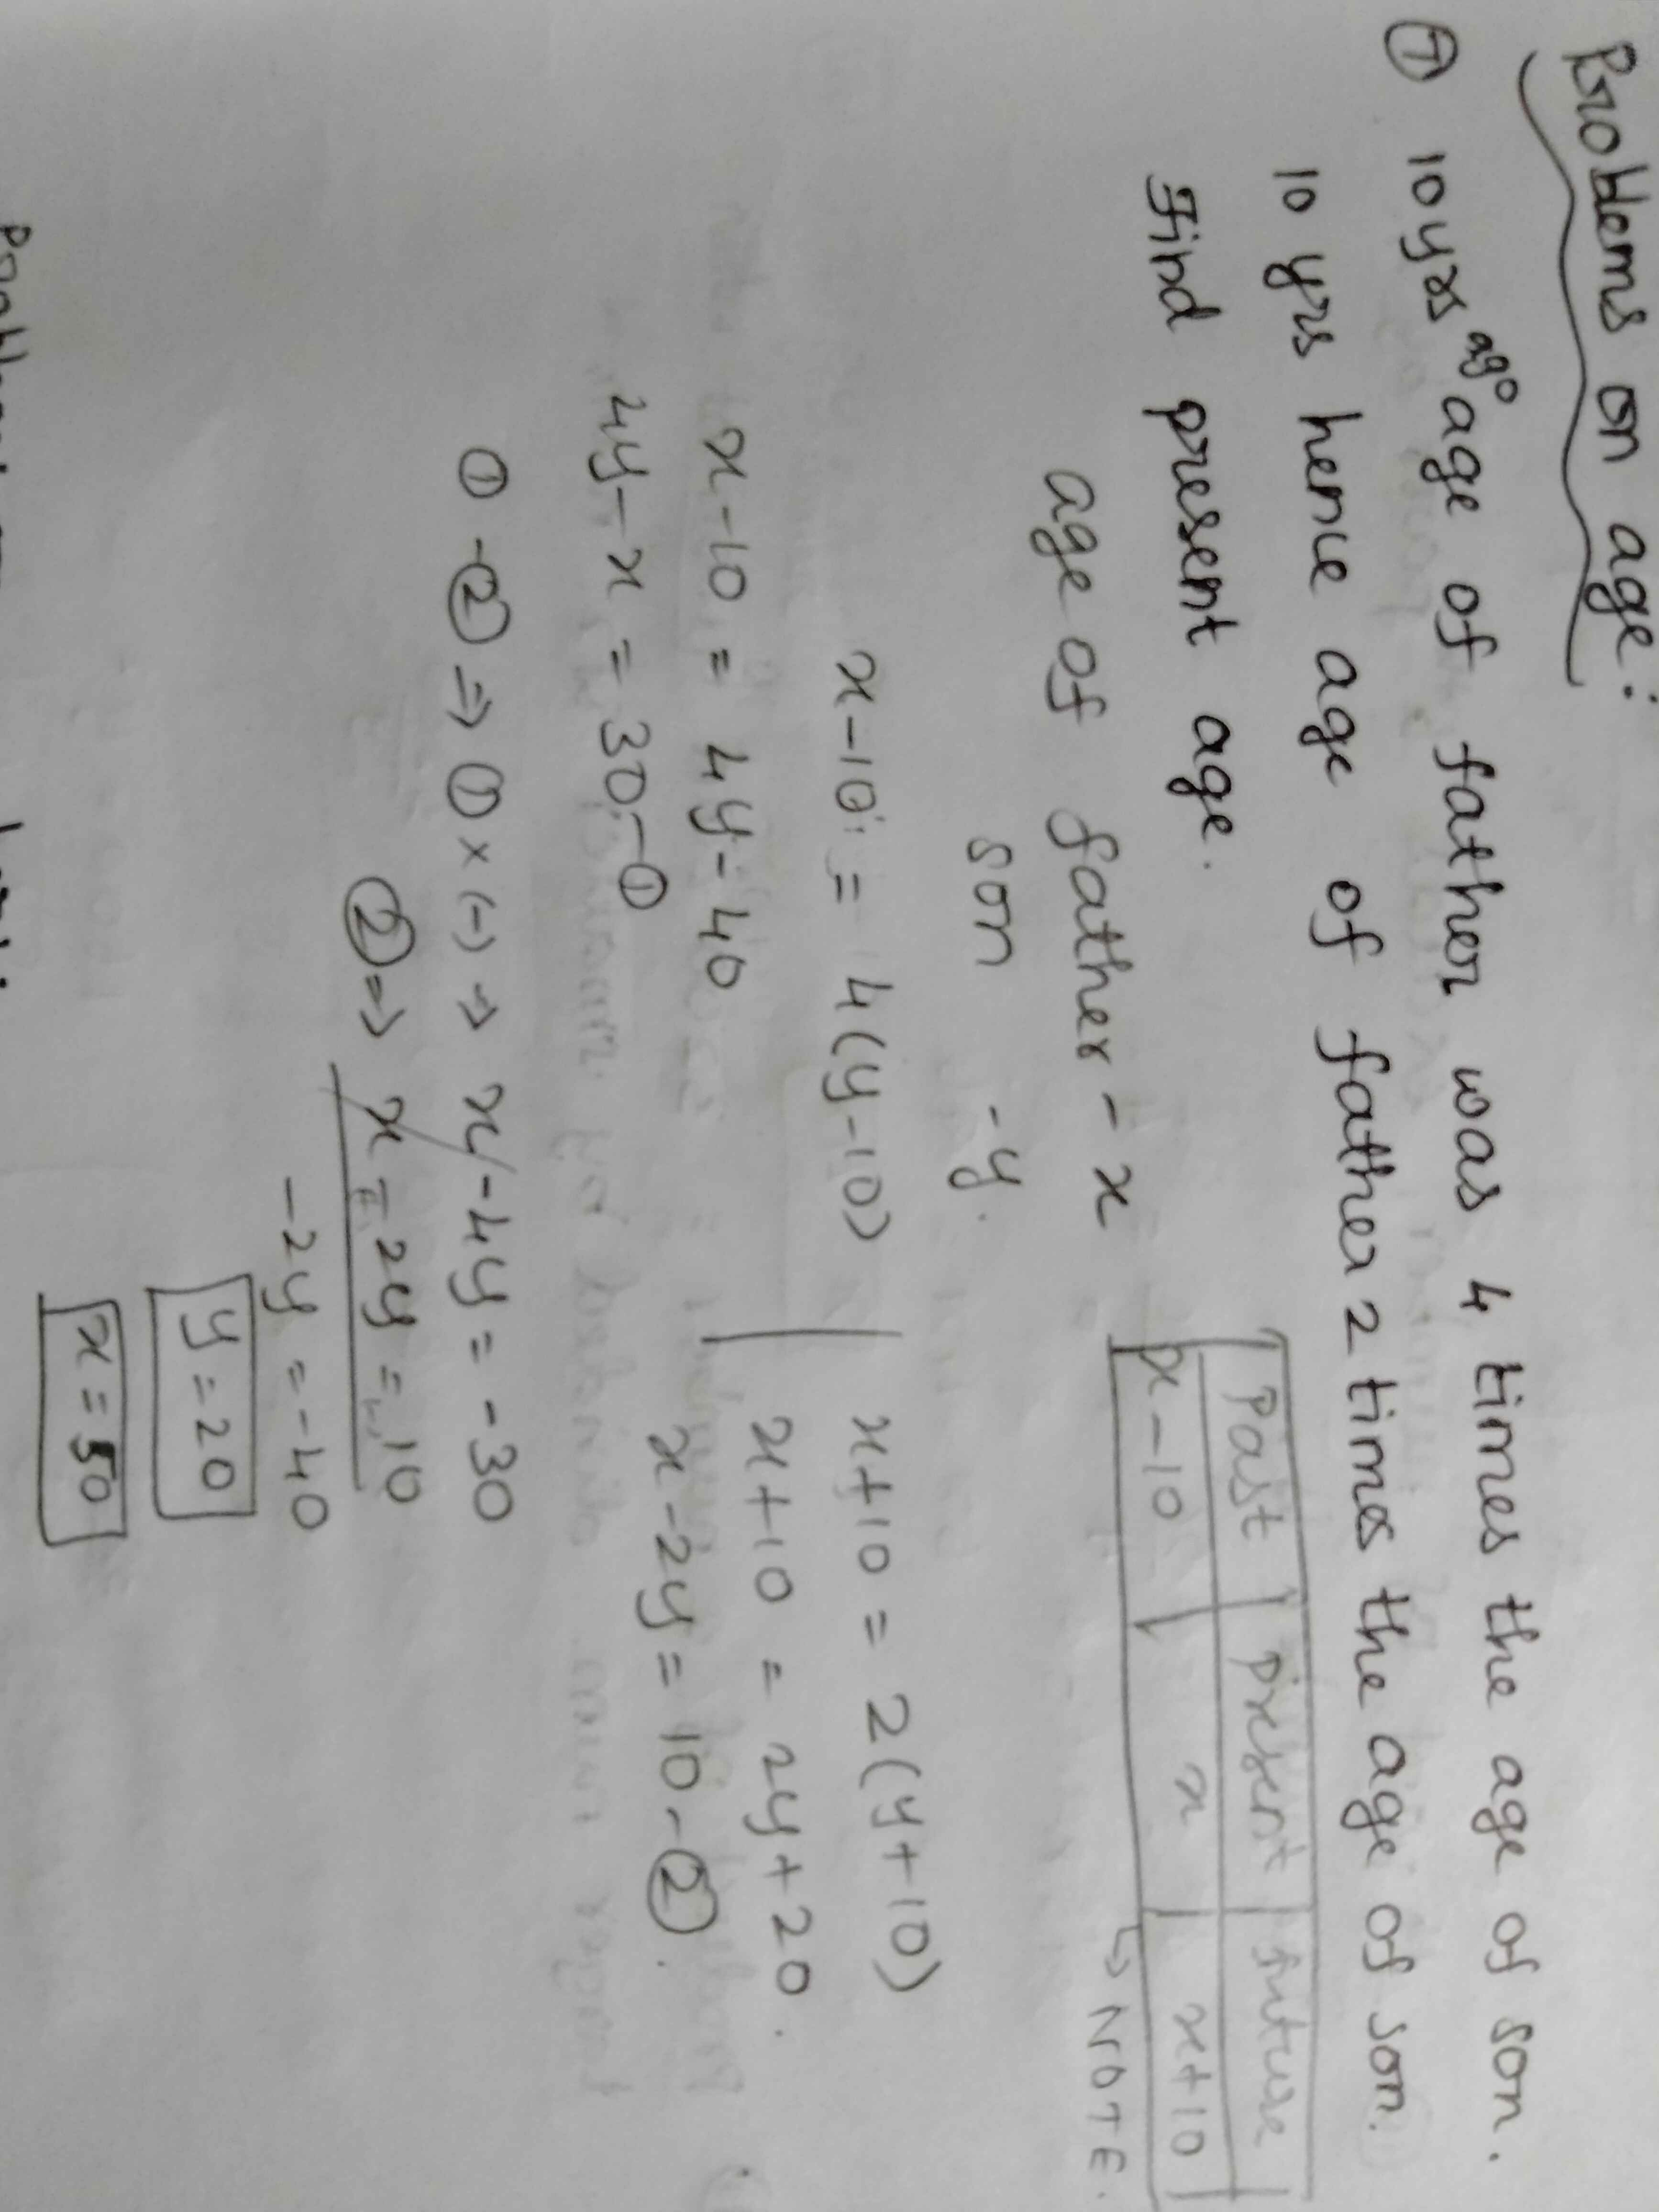 Problems on age:
① 10yrs ago age of father was 4 times the age of son.
10 yrs hence age of father 2 times the age of son.
Find present age.
Past | present | future
x-10 | x | x+10
↳ NOTE.
age of father - x
son - y.
x-10 = 4(y-10)
x-10 = 4y-40
4y-x = 30 - ①
x+10 = 2(y+10)
x+10 = 2y+20.
x-2y = 10 - ②.
① - ② ⇒ ① x (-) → x-4y = -30
② ⇒ x-2y = 10
-2y = -40
y = 20
x = 50